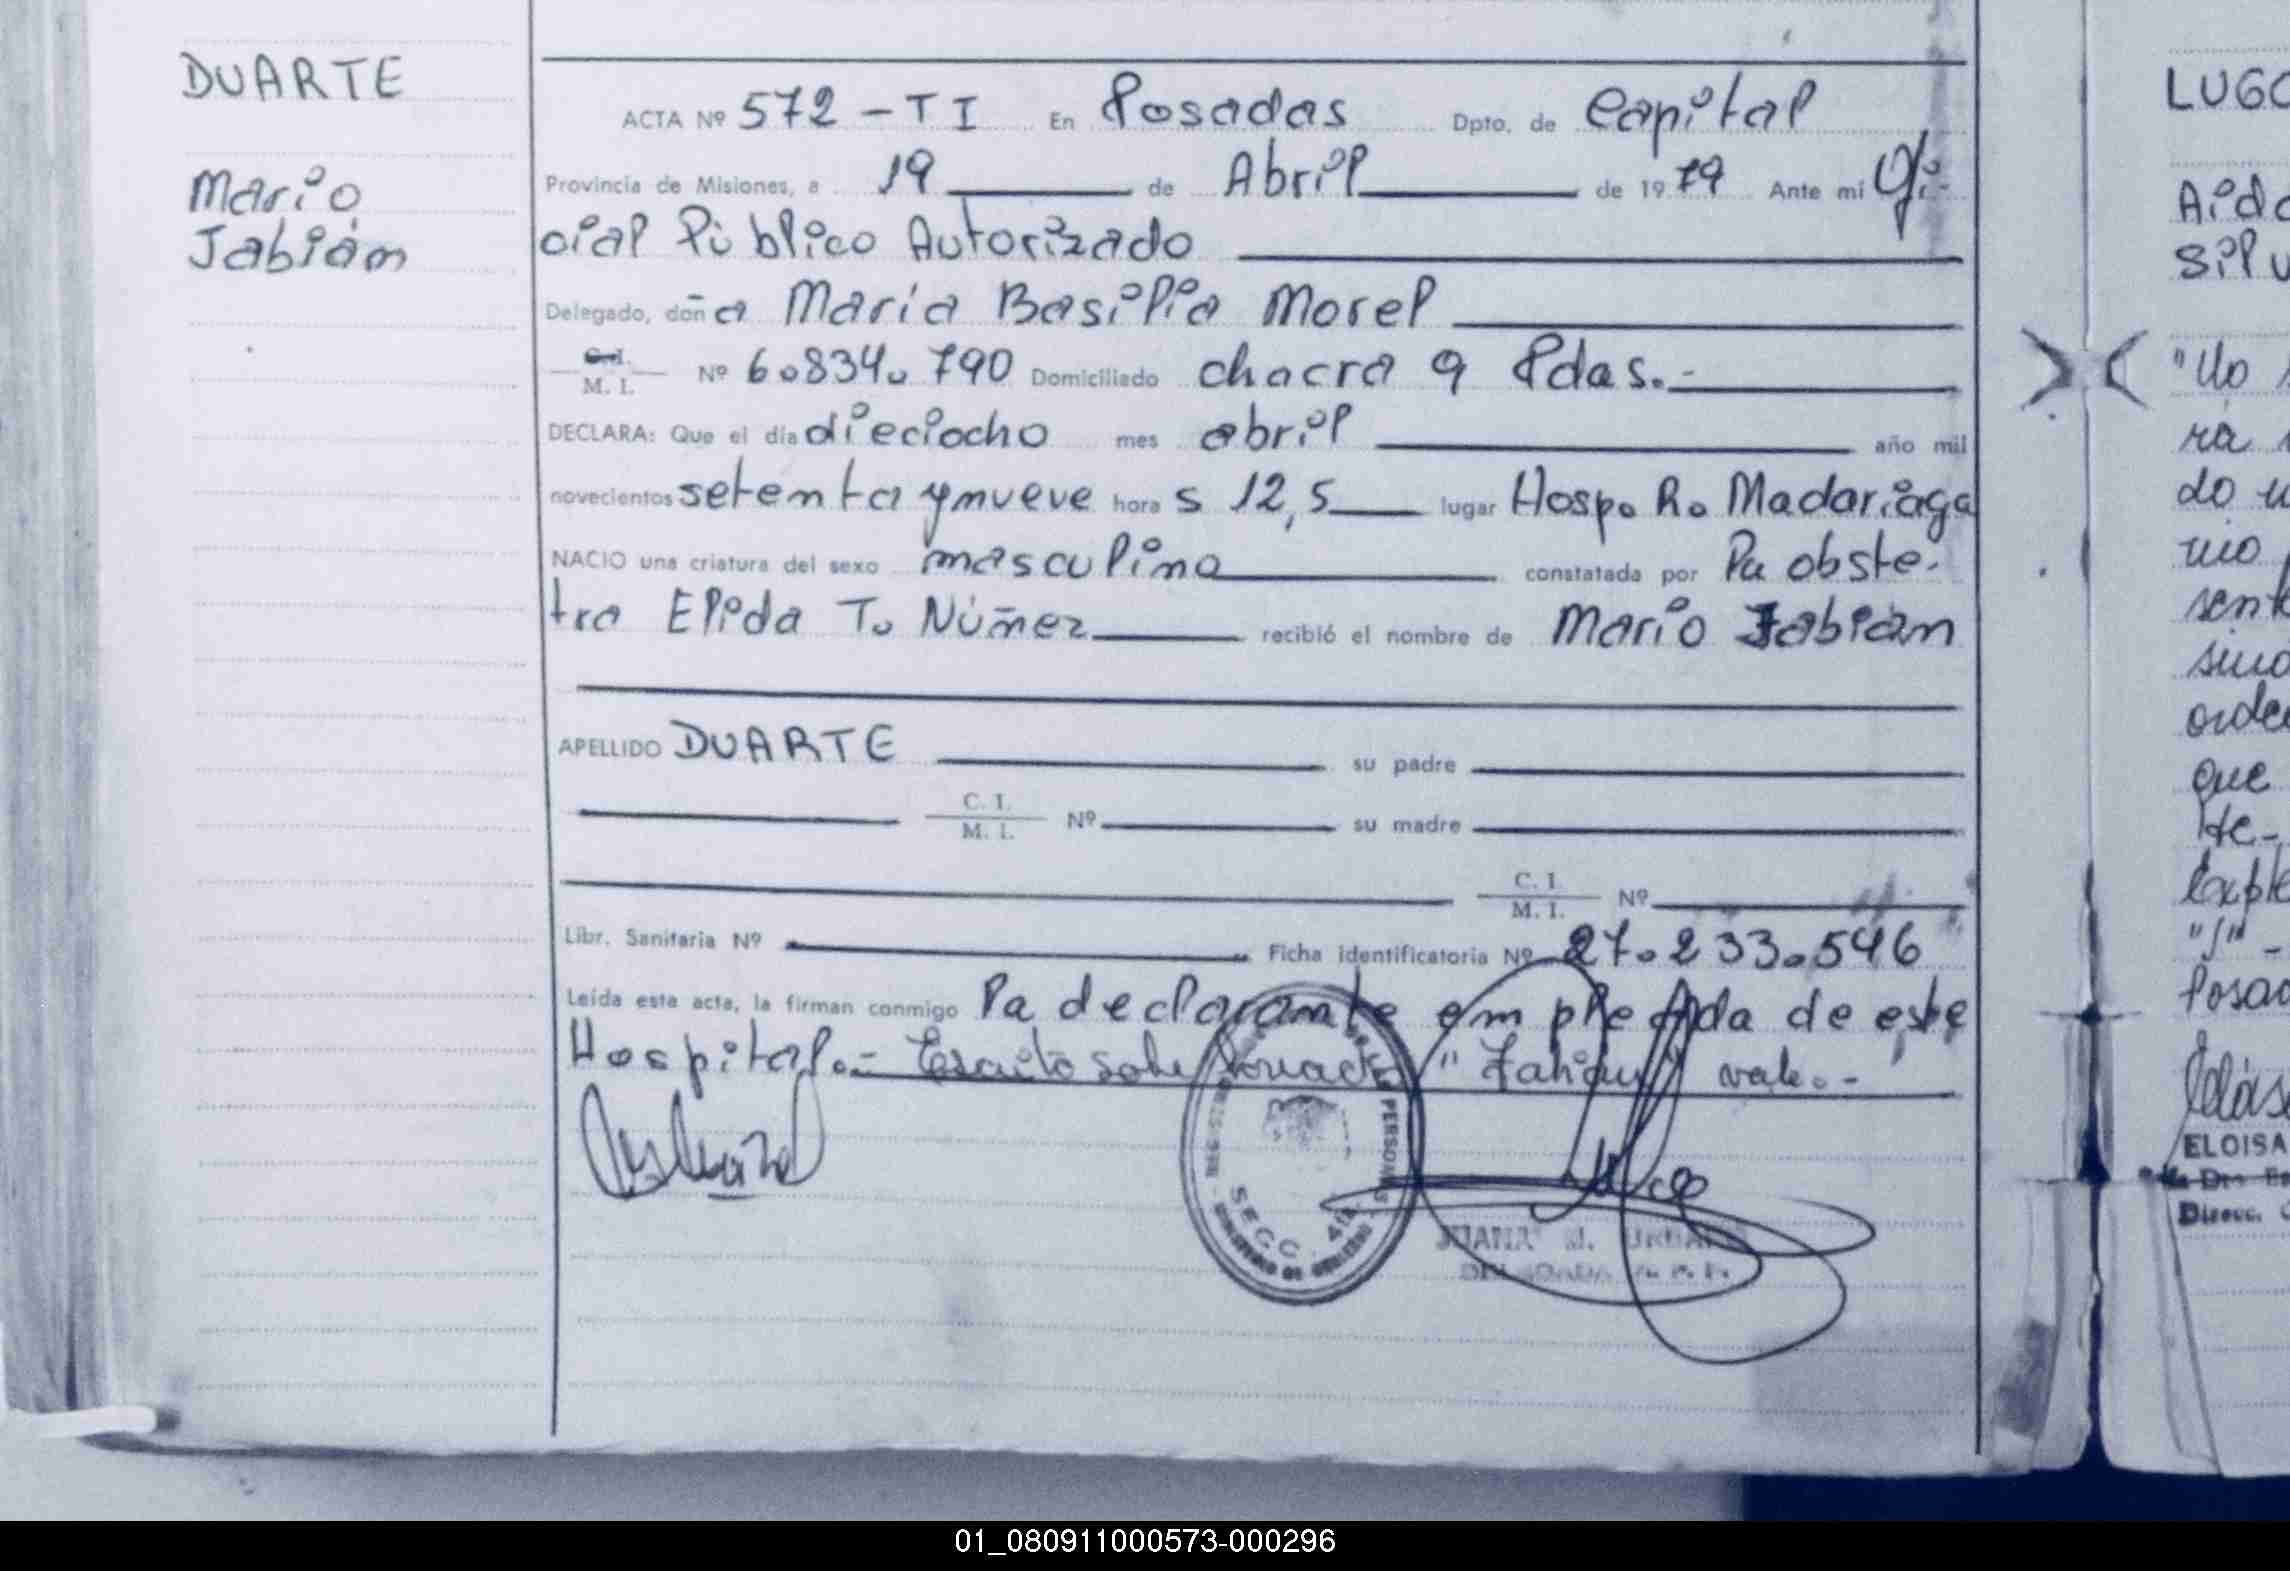 DUARTE
Mario
Fabián
ACTA Nº 572 - T I En Posadas Dpto. de Capital
Provincia de Misiones, a 19 de Abril de 1979 Ante mí Ofi-
cial Público Autorizado
Delegado, doña María Basilia Morel
C. I.
M. I. Nº 6.834.790 Domiciliado chacra 9 Pdas.-
DECLARA: Que el día dieciocho mes abril año mil
novecientos setenta y nueve horas 12,5 lugar Hosp. R. Madariaga
NACIO una criatura del sexo masculino constatada por la obste-
tra Elida T. Núñez recibió el nombre de Mario Fabián
APELLIDO DUARTE su padre
C. I.
M. I. Nº su madre
C. I.
M. I. Nº
Libr. Sanitaria Nº Ficha identificatoria Nº 27.233.546
Leída esta acta, la firman conmigo la declarante empleada de este
Hospital.- Escrito sobre "Fabián" vale.-
PERSONAS
SECC. 4ta.
JUANA M.
LUGO
Aida
Silv
"Uo
rá
do
sente
sino
orde
que
te-
"S" -
Posad
ELOISA
Direcc.
01_080911000573-000296